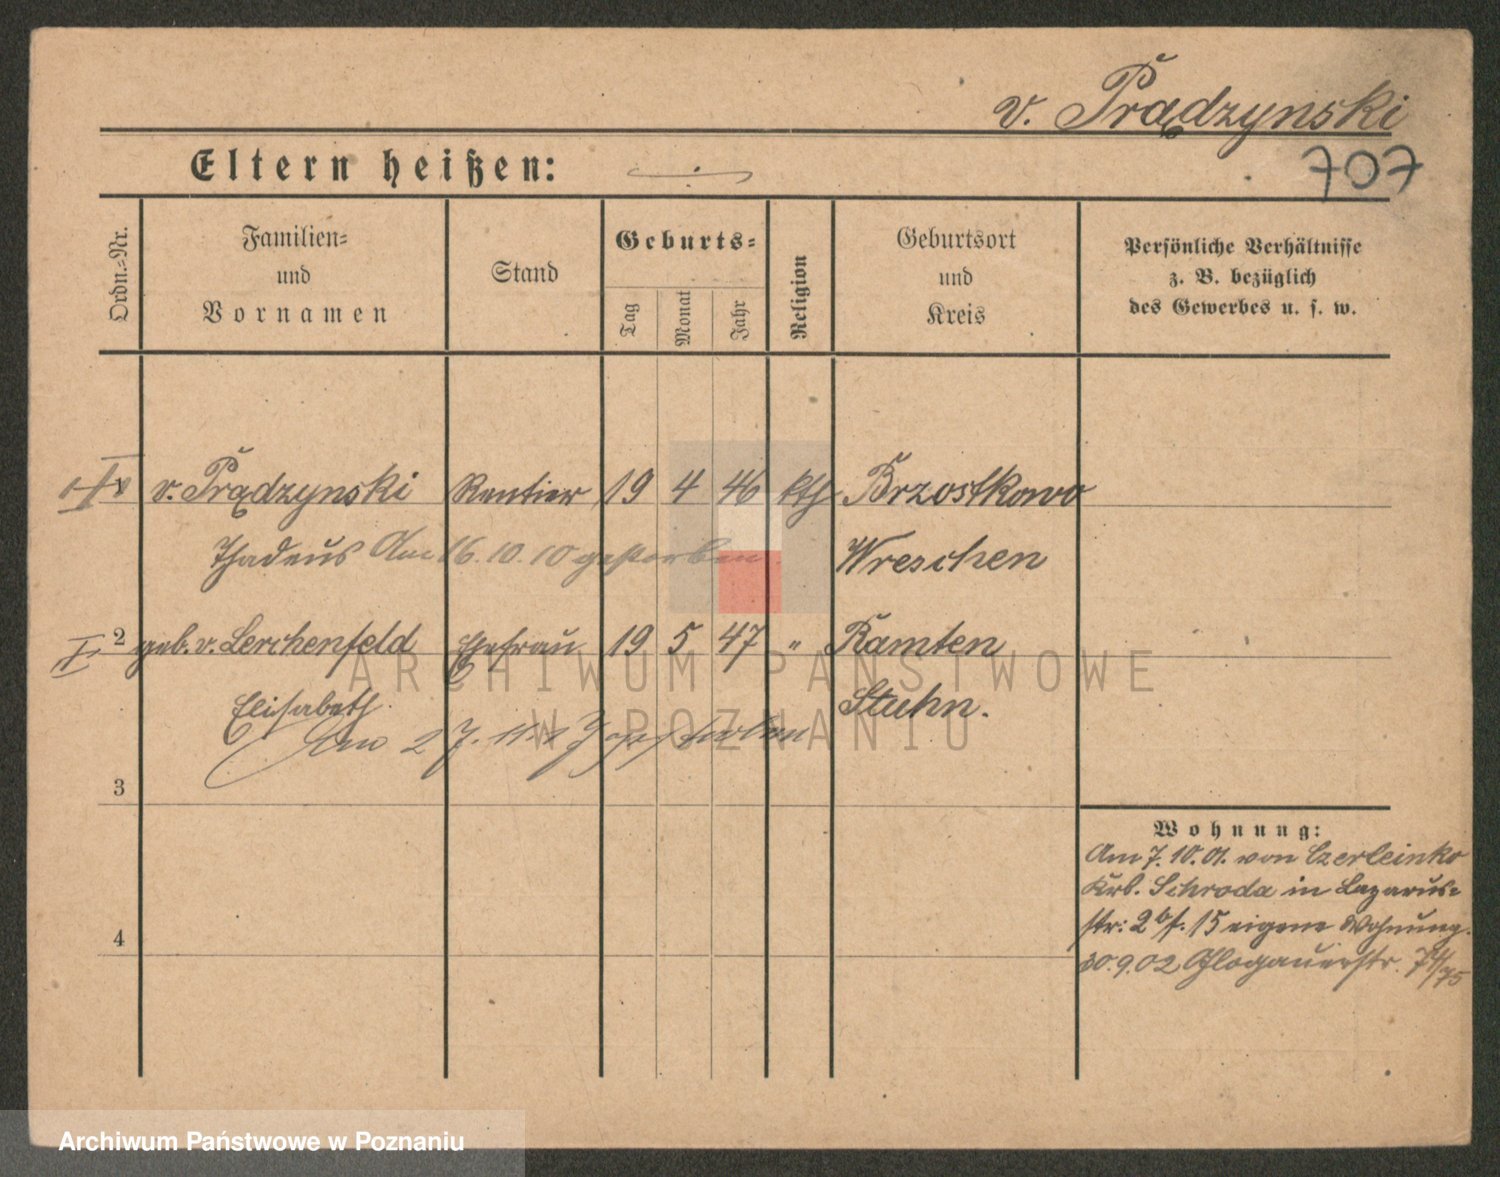 v. Prądzynski
707
Eltern heißen:
Ordn.-Nr.
Familien-
und
Vornamen
Stand
Geburts-
Tag
Monat
Jahr
Religion
Geburtsort
und
Kreis
Persönliche Verhältnisse
z. B. bezüglich
des Gewerbes u. s. w.
v. Prądzynski Rentier 19 4 46 kth Brzostkowo
Thadeus Am 16.10.10 gestorben. Wreschen
2 geb. v. Lerchenfeld Ehefrau 19 5 47 " Ramten
Elisabeth Stuhn.
Am 27. gestorben
3
4
Wohnung:
Am 7.10.01. von Czerleinko
Krb. Schroda in Lazarus-
str: 2 bf. 15 eigene Wohnung.
30.9.02 Glogauerstr. 74/75
ARCHIWUM PAŃSTWOWE
W POZNANIU
Archiwum Państwowe w Poznaniu